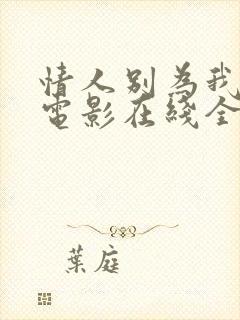 情人别為我
電影在綫全
葉庭